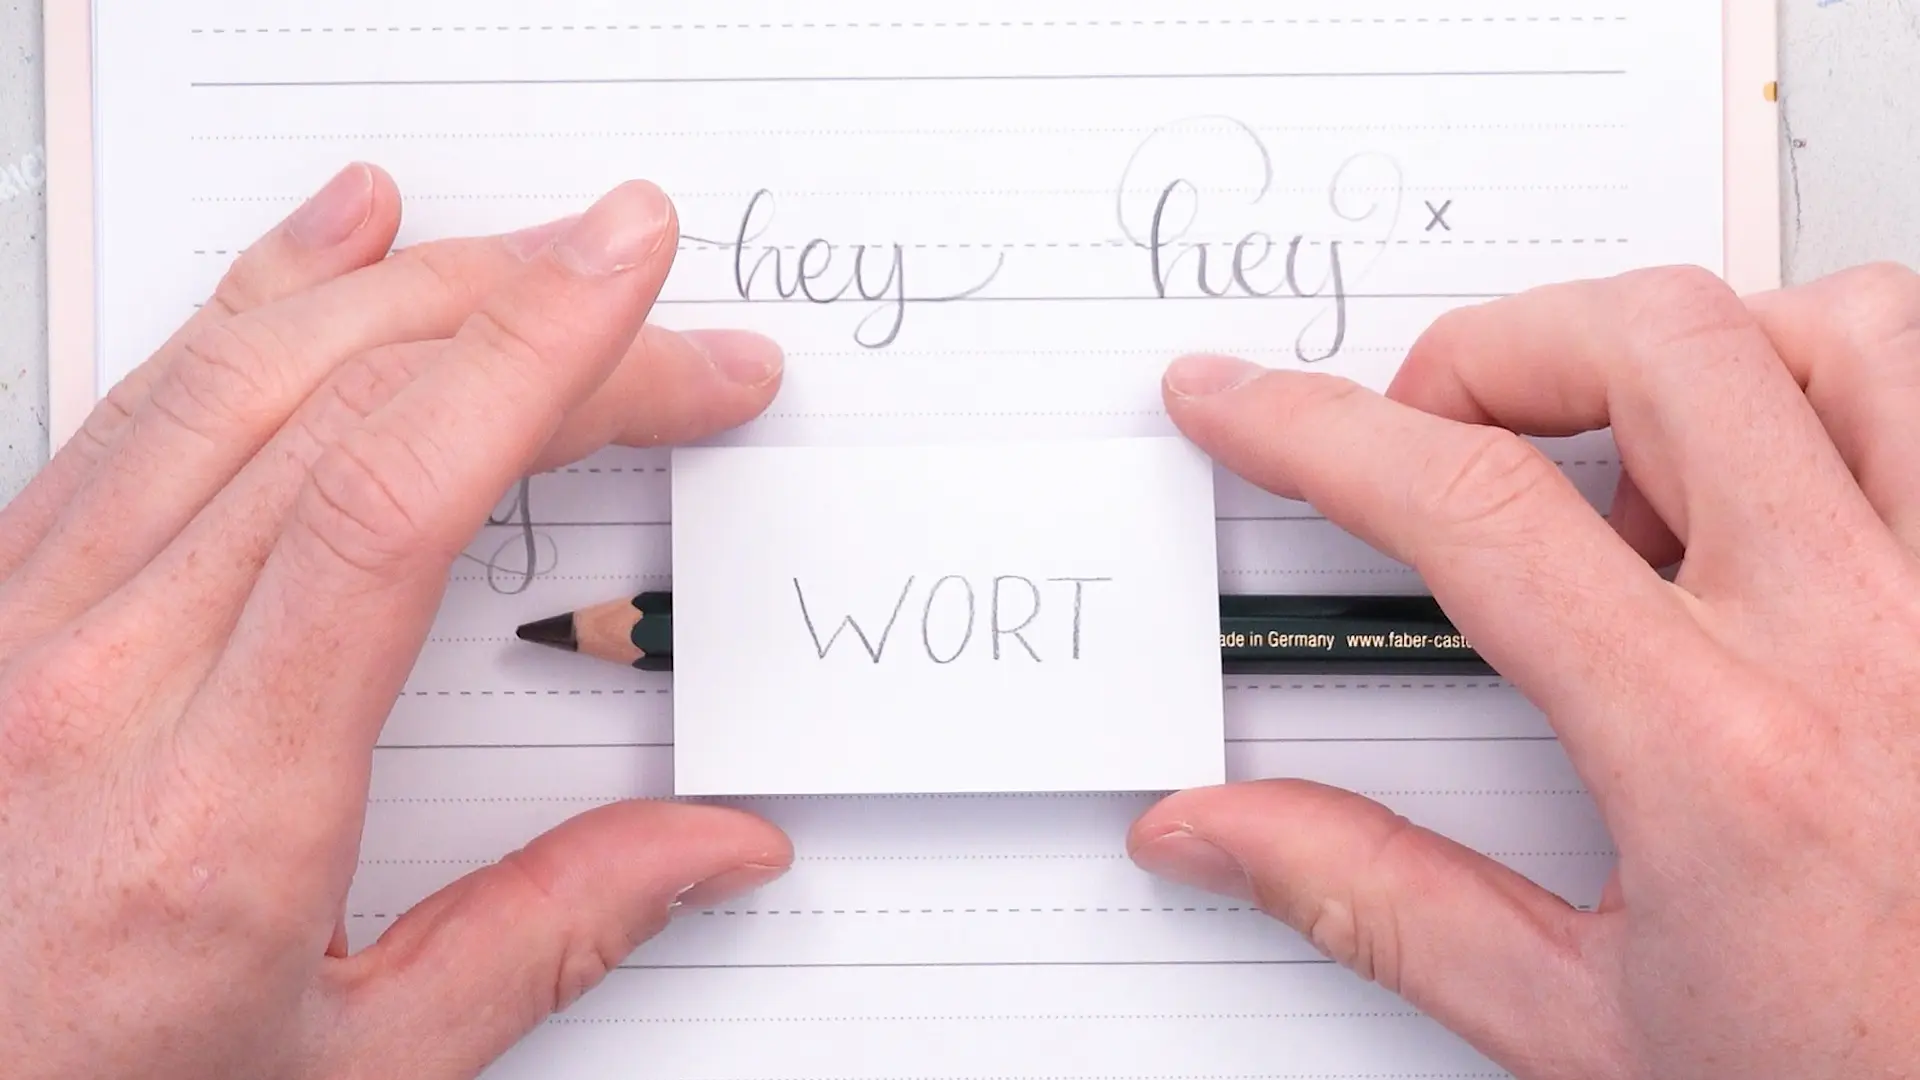 hey hey x
WORT
ade in Germany www.faber-caste